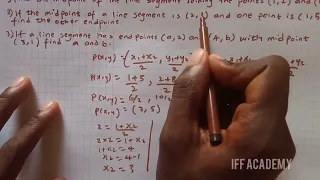 joining the points (1, 2) and
2) If the midpoint of a line segment is (2, and one point is (1, 5
find the other endpoint
3) If a line segment has endpoints (a, 2) and (4, b) with midpoint
(3, 1) find a and b.
P(x,y) = x₁+x₂/2, y₁+y₂
P(x,y) = 1+5/2, 2+8
P(x,y) = 6/2, 10/2
P(x,y) = (3, 5)
2 = 1+x₂/2
2×2 = 1+x₂
1+x₂ = 4
x₂ = 4-1
x₂ = 3
IFF ACADEMY